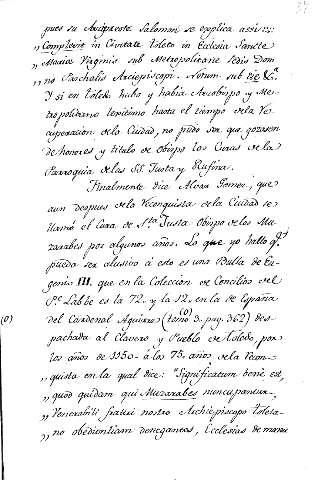 pues su Arcipreste Salomon se esplica assi:
„ Completus in Civitate Toleto in Eclesia Sancte
„ Marie Virginis sub Metropolitane Sedis Dom-
„ no Paschalis Arciepiscopi. Notum sub die &c.
Y si en Toledo hubo y habia Arzobispo y Me-
tropolitano legitimo hasta el tiempo dela Re
cuperacion dela Ciudad, no pudo ser que gozasen
de honores y titulo de Obispo los Curas de la
Parroquia de las SS. Justa y Rufina.
Finalmente dice Alvar Gomez, que
aun despues dela Reconquista dela Ciudad se
llamó el Cura de S.ta Justa Obispo de los Mu-
zarabes por algunos años. Lo que yo hallo q.e
pueda ser alusivo á esto es una Bulla de Eu-
genio III. que en la Coleccion de Concilios del
P.e Labbe es la 72. y la 12. en la de España
(o) del Cardenal Aguirre (tomo(o) 3. pag. 362) des-
pachada al Clavero y Pueblo de Toledo, por
los años de 1150. á los 75. años dela Recon-
„ quista en la qual dice: "Significatum bene est,
„ quod quidam qui Muzarabes nuncupantur,
„ Venerabili fratri nostro Archiepiscopo Toleta-
„ no obedientiam denegantes, Ecclesias de manu